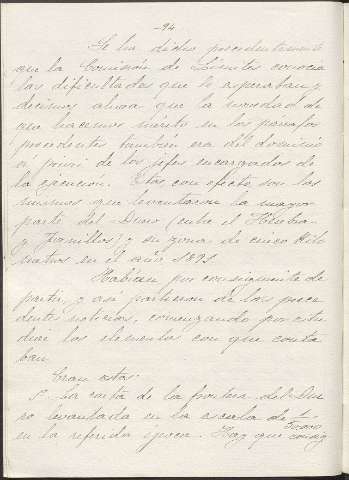 -94-
Se ha dicho precedentemente
que la Comisión de Límites conocía
las dificultades que le esperaban, y
decimos ahora que la novedad de
que hacemos mérito en los párrafos
precedentes también era del dominio
á priori de los jefes encargados de
la ejecución. Estos, con efecto, son los
mismos que levantaron la mayor
parte del Duero (entre el Huebra
y Fornillos) y su zona de cinco kiló
metros en el año 1891.
Habían por consiguiente de
partir, y así partieron de las prece
dentes noticias, comenzando por estu
diar los elementos con que conta
ban.
Eran estos:
La carta de la frontera del Due
ro levantada en la escala de
en la referida época. Hay que